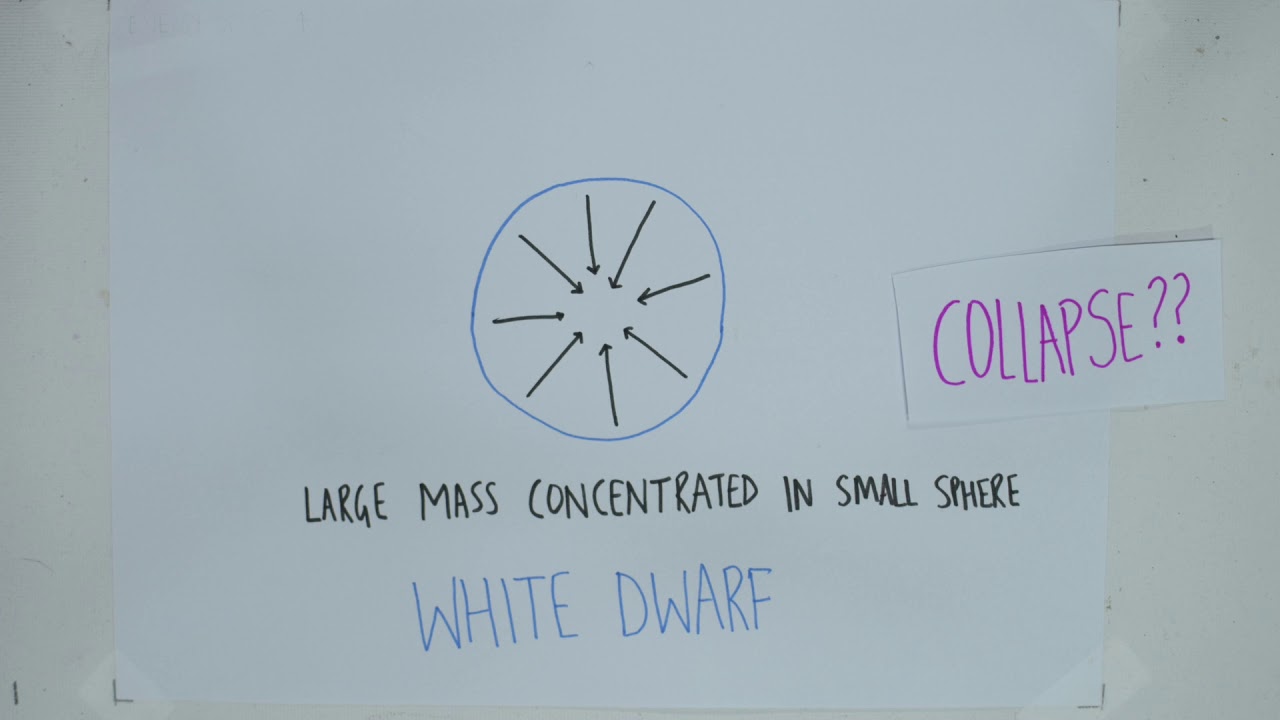 COLLAPSE??
LARGE MASS CONCENTRATED IN SMALL SPHERE
WHITE DWARF